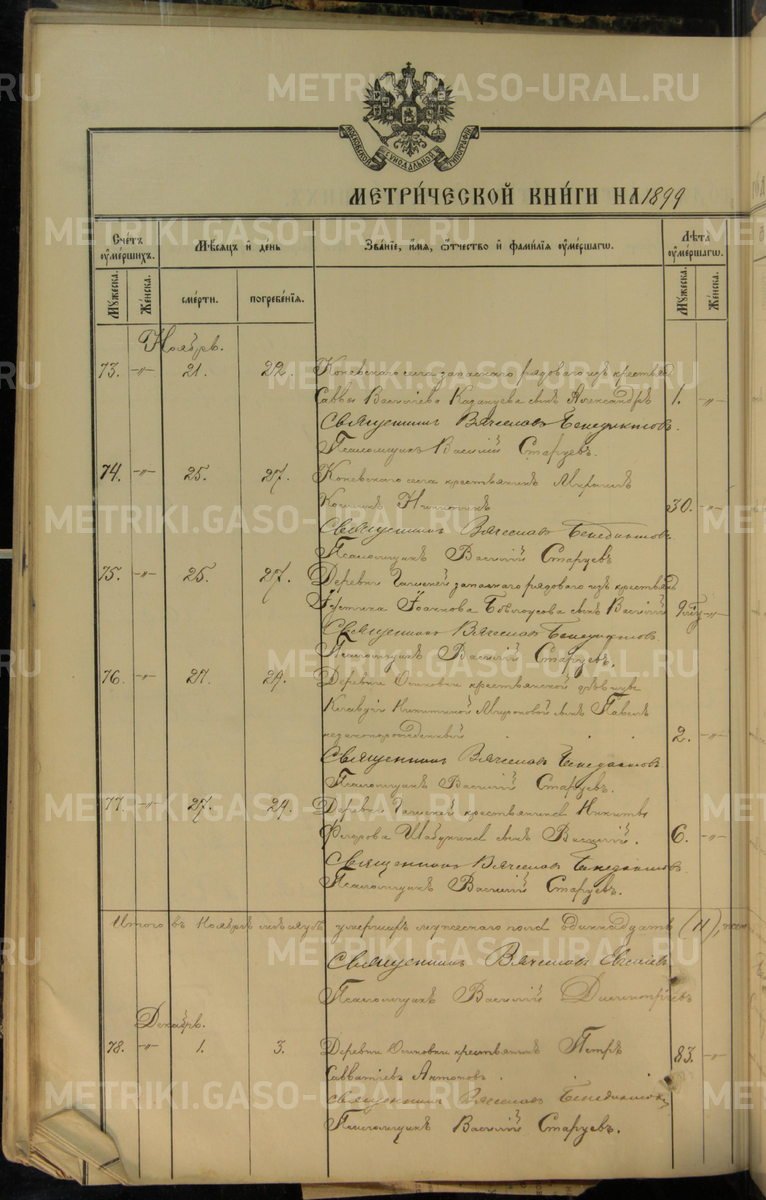 METRIKI.GASO-URAL.RU
МОСКОВСКОЙ СѴНОДАЛЬНОЙ ТИПОГРАФІИ
МЕТРИ́ЧЕСКОЙ КНИ́ГИ НА 1899
Сче́тъ оу҆ме́ршихъ.
Мѣ́сяцъ и҆ де́нь
Зва́нїе, и҆́мя, ѻ҆́тчество и҆ фами́лїя оу҆ме́ршагѡ.
Лѣ́та оу҆ме́ршагѡ.
Мꙋ́жеска.
Же́нска.
сме́рти.
погребе́нїя.
Мꙋ́жеска.
Же́нска.
Ноябрь.
73. -"- 21. 22. Коневскаго села запаснаго рядоваго изъ крестьянъ
Саввы Васильева сынъ Александръ 1. -"-
Священникъ Вячеславъ Бенедиктовъ.
Псаломщикъ Василій Старцевъ.
74. -"- 25. 27. Коневскаго села крестьянинъ
30. -"-
Священникъ Вячеславъ Бенедиктовъ
Псаломщикъ Василій Старцевъ
75. -"- 25. 27. Деревни запаснаго рядоваго изъ крестьянъ
Іустина Іоаннова Бѣлоусова сынъ Василій 9 -"-
Священникъ Вячеславъ Бенедиктовъ.
Псаломщикъ Василій Старцевъ.
76. -"- 27. 29. Деревни Осиновки крестьянской дѣвицы
Клавдіи Никитиной Мироновой сынъ Павелъ
незаконорожденный 2. -"-
Священникъ Вячеславъ Бенедиктовъ
Псаломщикъ Василій Старцевъ.
77. -"- 27. 29. Деревни крестьянина Никиты
Федорова сынъ Василій. 6. -"-
Священникъ Вячеславъ Бенедиктовъ.
Псаломщикъ Василій Старцевъ.
Итого въ Ноябрѣ мѣсяцѣ умершихъ мужескаго пола одиннадцать (11),
Священникъ Вячеславъ
Псаломщикъ Василій
Декабрь.
78. -"- 1. 3. Деревни Осиновки крестьянинъ Петръ 83. -"-
Савватіевъ Антоновъ.
Священникъ Вячеславъ Бенедиктовъ
Псаломщикъ Василій Старцевъ.